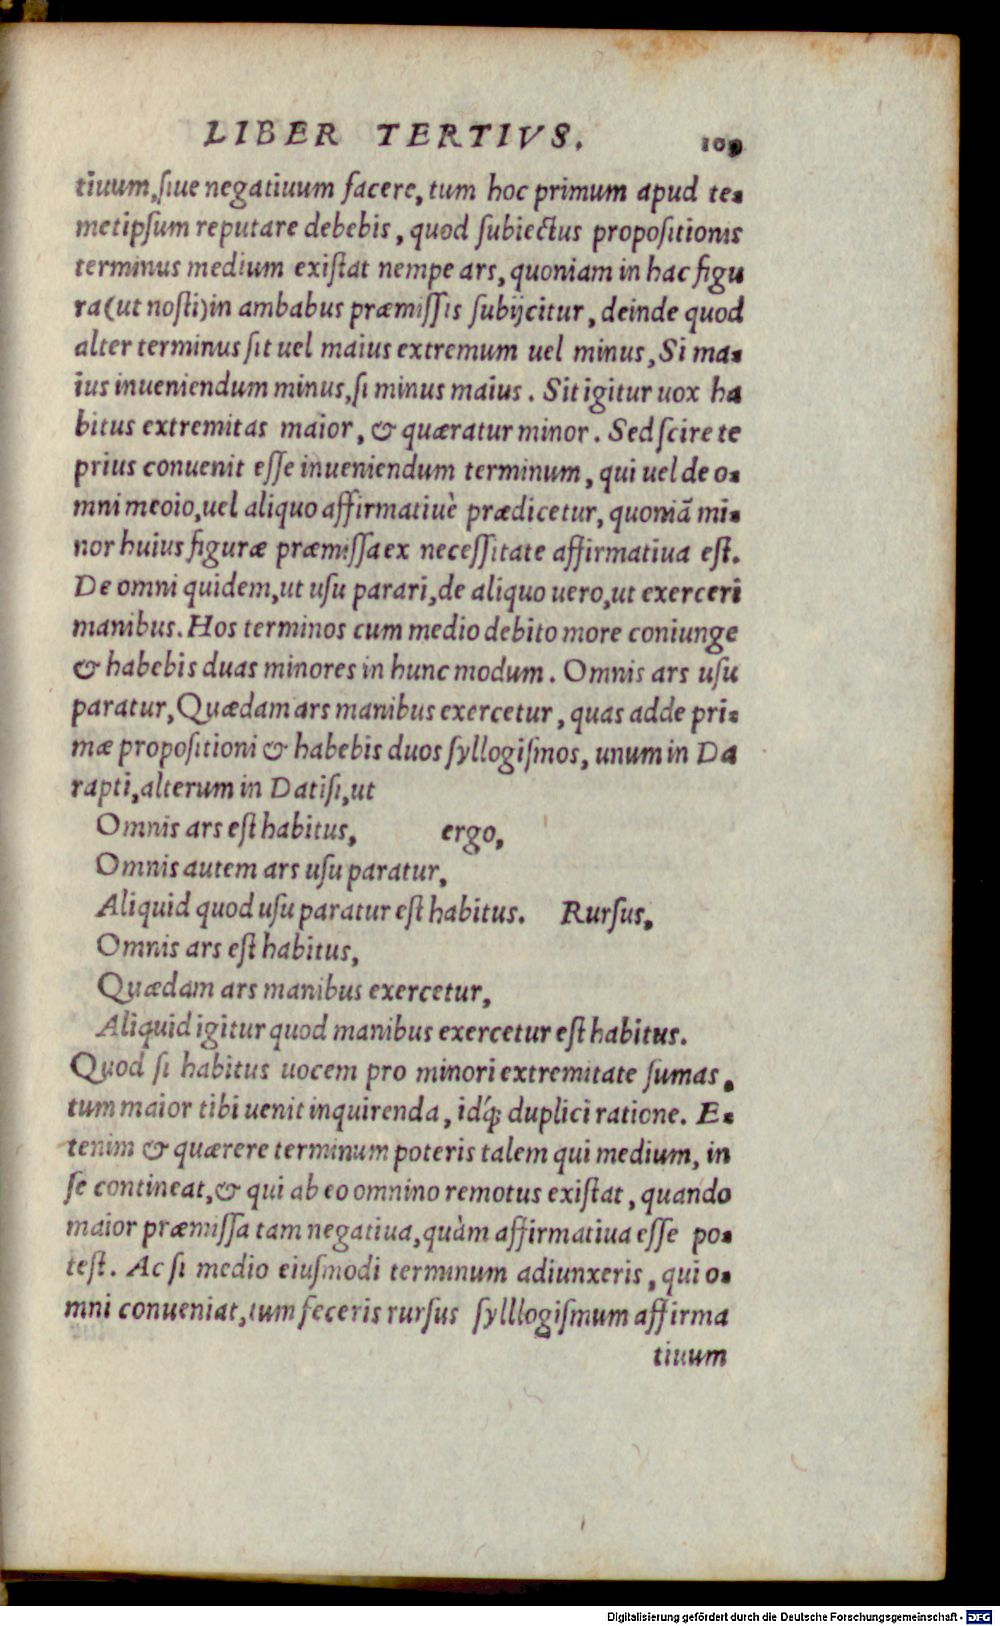 LIBER TERTIVS. 109
tiuum, ſiue negatiuum facere, tum hoc primum apud te-
metipſum reputare debebis, quod ſubiectus propoſitionis
terminus medium exiſtat nempe ars, quoniam in hac figu
ra (ut noſti) in ambabus præmiſſis ſubijcitur, deinde quod
alter terminus ſit uel maius extremum uel minus, Si ma-
ius inueniendum minus, ſi minus maius. Sit igitur uox ha
bitus extremitas maior, & quæratur minor. Sed ſcire te
prius conuenit eſſe inueniendum terminum, qui uel de o-
mni meoio, uel aliquo affirmatiuè prædicetur, quoniã mi-
nor huius figuræ præmiſſa ex neceſſitate affirmatiua eſt.
De omni quidem, ut uſu parari, de aliquo uero, ut exerceri
manibus. Hos terminos cum medio debito more coniunge
& habebis duas minores in hunc modum. Omnis ars uſu
paratur, Quædam ars manibus exercetur, quas adde pri-
mæ propoſitioni & habebis duos ſyllogiſmos, unum in Da
rapti, alterum in Datiſi, ut
Omnis ars eſt habitus, ergo,
Omnis autem ars uſu paratur,
Aliquid quod uſu paratur eſt habitus. Rurſus,
Omnis ars eſt habitus,
Quædam ars manibus exercetur,
Aliquid igitur quod manibus exercetur eſt habitus.
Quod ſi habitus uocem pro minori extremitate ſumas,
tum maior tibi uenit inquirenda, idq́; duplici ratione. E-
tenim & quærere terminum poteris talem qui medium, in
ſe contineat, & qui ab eo omnino remotus exiſtat, quando
maior præmiſſa tam negatiua, quàm affirmatiua eſſe po-
teſt. Ac ſi medio eiuſmodi terminum adiunxeris, qui o-
mni conueniat, tum feceris rurſus ſylllogiſmum affirma
tiuum
Digitalisierung gefördert durch die Deutsche Forschungsgemeinschaft - DFG